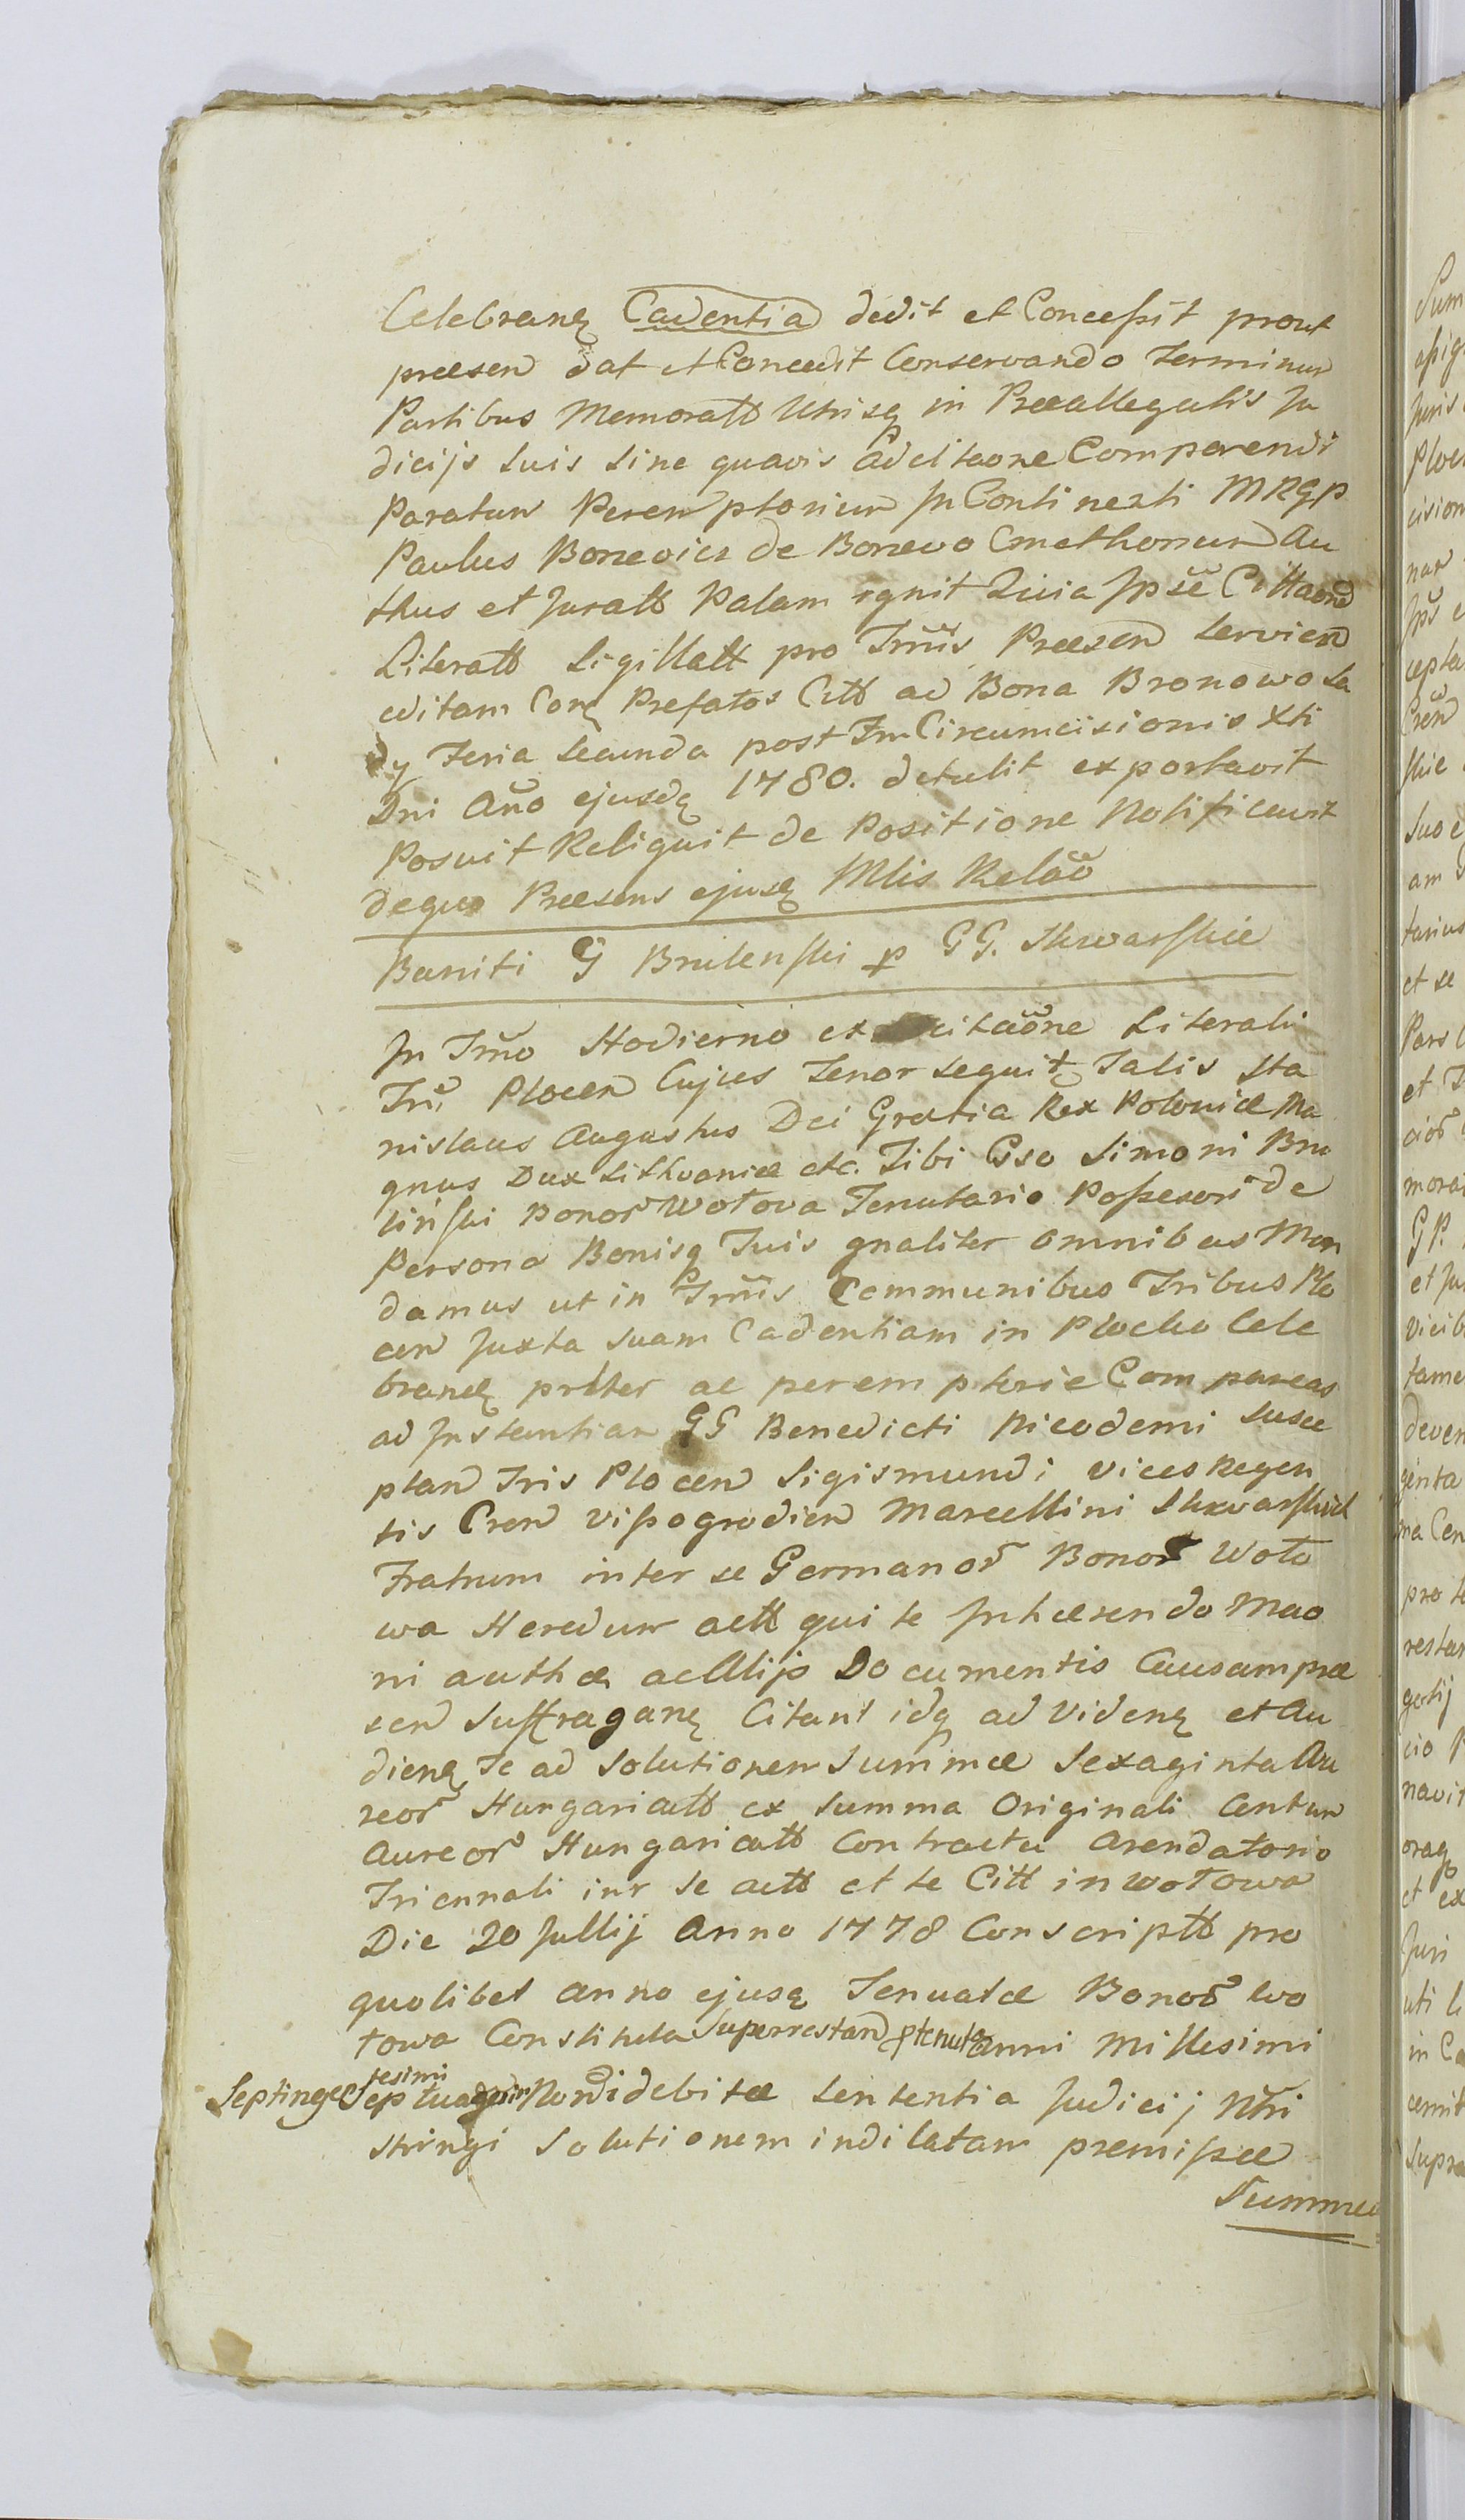 Celebranę Cadentia dedit et Concessit prout
præsen dat et Concedit Conservando Terminum
Partibus Memoratt Utrisq in Præallegatis Ju
dicijs Suis Sine quavis Adcitaone Comparendi
Paratum Peremptorium In Continenti MRGP
Paulus Bonevicz de Bonevo Cmethonum Au
thus et Juratt Palam rgnit Quia Ipse Cittaone
Literatt Sigillatt pro Trmis Præsen Servien
editam Conę Prefatos Citt ad Bona Bronowo Sa
dy Feria Secunda post Fm Circumcisionis Xti
Dni Año ejusdę 1780. detulit exportavit
Posuit Reliquit de Positione Notificavit
dequo Præsens ejusę Mlis Relao
Baniti G Brulenski p GG. Skwarskie
In Trmo Hodierno ex citaone Literali
Trī Plocen Cujus Tenor Sequit Talis Sta
nislaus Augustus Dei Gratia Rex Poloniæ Ma
gnus Dux Lithvaniæ etc. Tibi Gso Simoni Bru
linski Bonor Wotova Tenutario Possesori de
Persona Bonisq Tuis gnaliter Omnibus Man
damus ut in Trmis Communibus Tribus Plo
cen Juxta Suam Cadentiam in Plocko Cele
branę prlter ac peremptorie Compareas
ad Instantiam GG Benedicti Nicodemi Susce
ptan Tris Plocen Sigismundi Vices Regen
tis Cren Vissogrodien Marcellini Skwarskich
Fratrum inter se Germanor Bonor Woto
wa Heredum actt qui te Inhærendo Mao
ni authæ ac Alijs Documentis Causam præ
sen Suffraganę Citant idq ad Videnę et Au
dienę Te ad Solutionem Summæ Sexaginta Au
reor Hungaricatt ex Summa Originali Centum
Aureor Hungaricatt Contractu Arendatorio
Triennali inr Se actt et te Citt in Wotowa
Die 20 Jullij Anno 1778 Conscriptt pro
quolibet anno ejusę Tenuatæ Bonor Wo
towa Constituta Superrestan ptenuta anni Millesimi
Septingetesimi Septuagesim Noni debitæ Sententia Judicij Ntri
Stringi Solutionem indilatam premissæ
Summæ